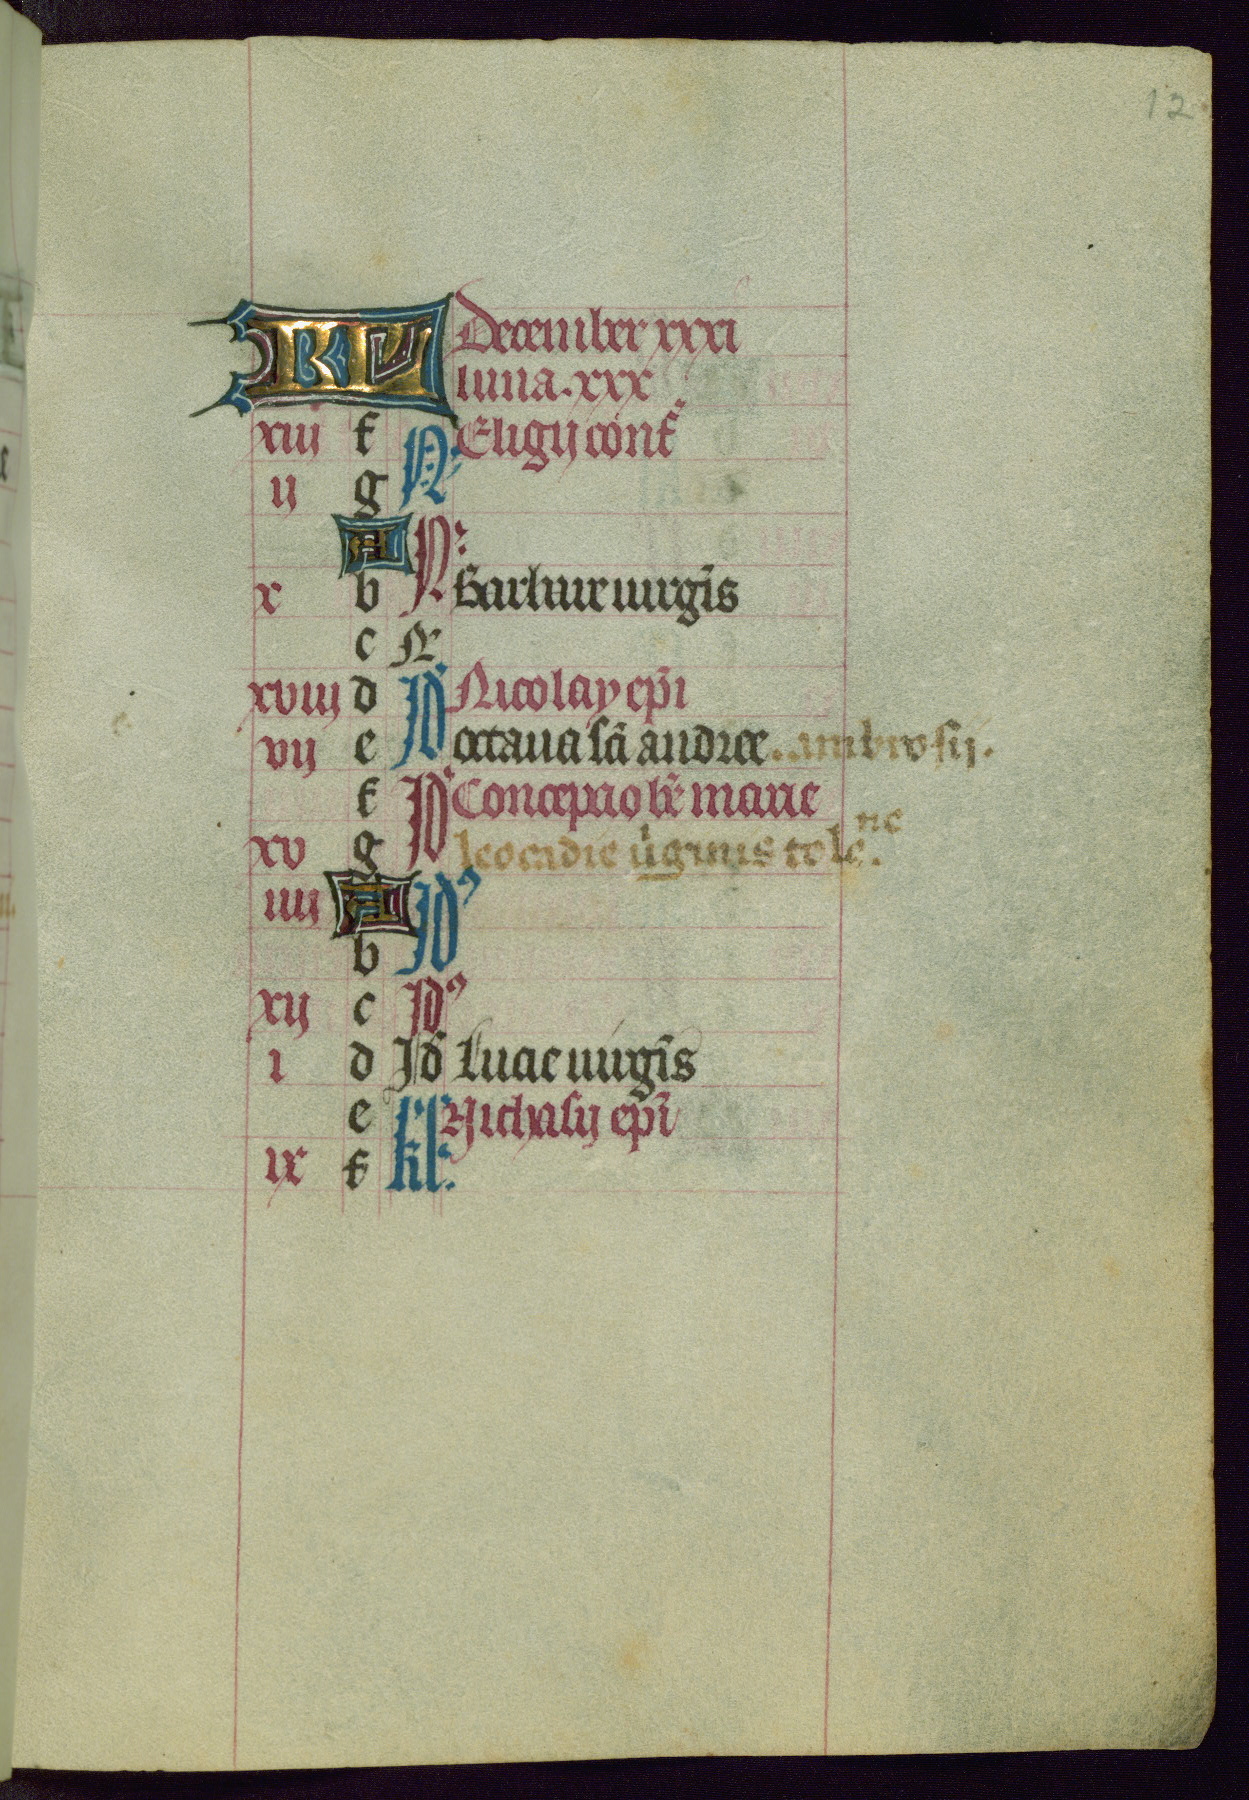 12
KL December xxxi
luna. xxx
xiij f N Eligij conf
ij g
A N
x b Barbare uirgīs
c N
xviij d Id Nicolay ep̄i
vij e octaua sc̄i andree. ambrosij.
f Id Conceptio be marie
xv g leocadie ūginis tole ne.
iiij A Id
b
xij c Id
i d Id Lucie uirgīs
e kl Nichasij ep̄i
ix f